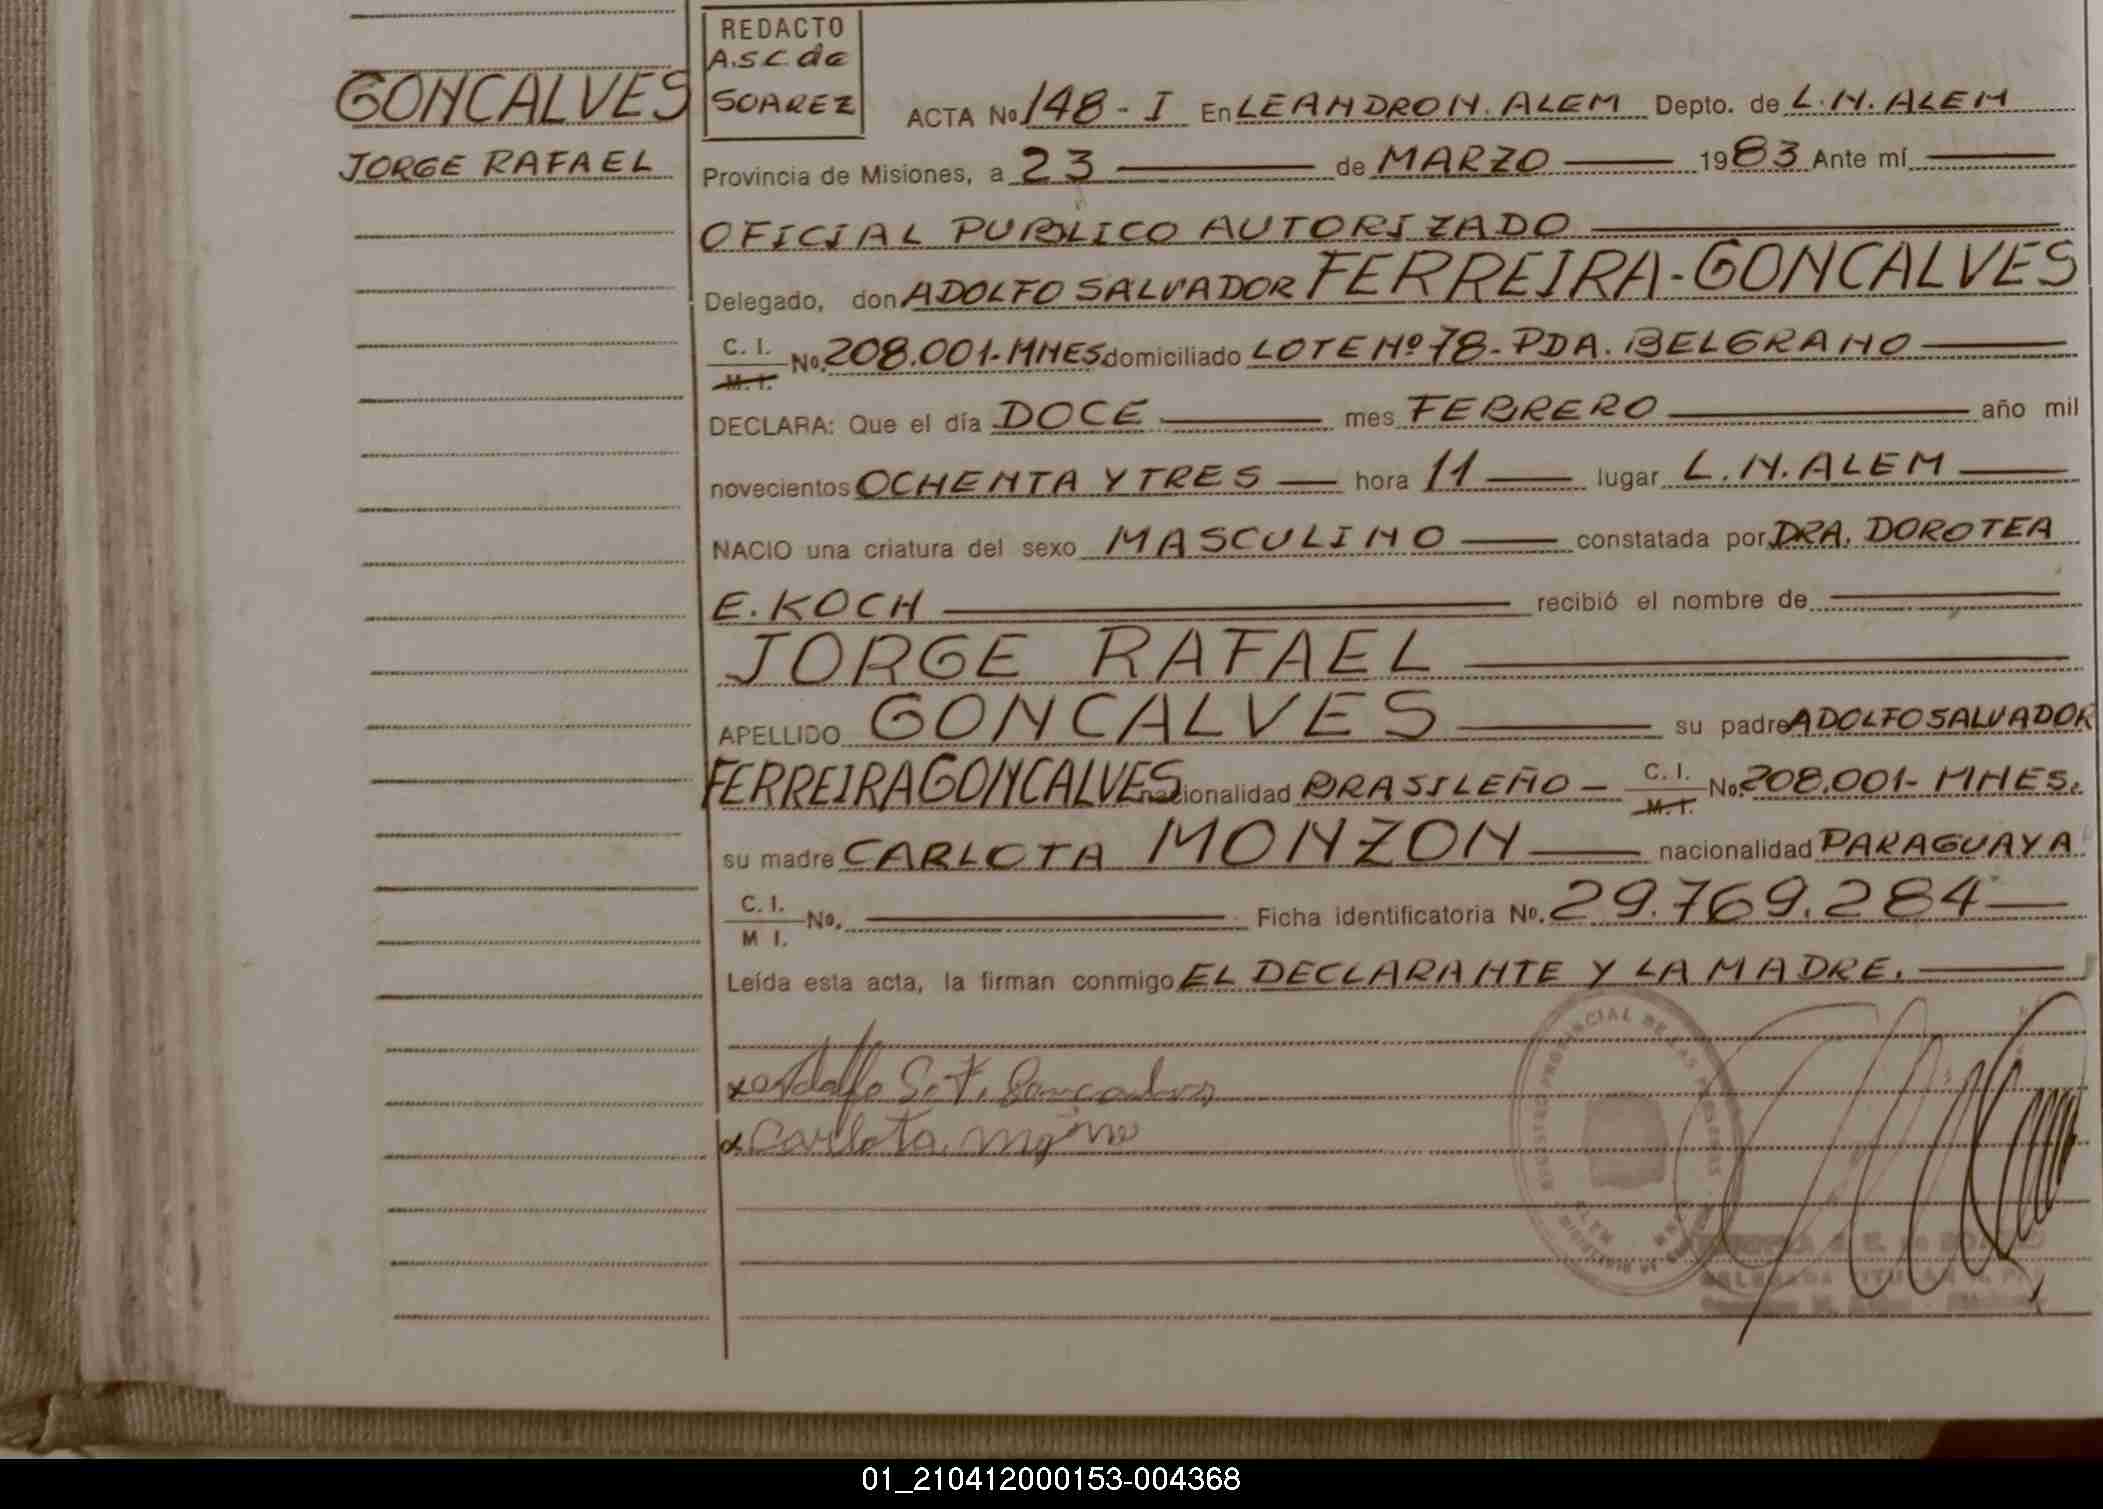 REDACTO
A.S.C. de
SOAREZ
GONCALVES
JORGE RAFAEL
ACTA No 148 - I En LEANDRO N. ALEM Depto. de L. N. ALEM
Provincia de Misiones, a 23 de MARZO 1983 Ante mí
OFICIAL PUBLICO AUTORIZADO
Delegado, don ADOLFO SALVADOR FERREIRA-GONCALVES
C. I. M. I. No. 208.001-MNES domiciliado LOTE Nº 78- PDA. BELGRANO
DECLARA: Que el día DOCE mes FEBRERO año mil
novecientos OCHENTA Y TRES hora 11 lugar L. N. ALEM
NACIO una criatura del sexo MASCULINO constatada por DRA. DOROTEA
E. KOCH recibió el nombre de
JORGE RAFAEL
APELLIDO GONCALVES su padre ADOLFO SALVADOR
FERREIRA GONCALVES nacionalidad BRASILEÑO - C. I. M. I. No. 208.001- MNES.
su madre CARLOTA MONZON nacionalidad PARAGUAYA
C. I. M I. No. Ficha identificatoria No. 29.769.284
Leída esta acta, la firman conmigo EL DECLARANTE Y LA MADRE.
x Adolfo S. F. Goncalves
x Carlota
REGISTRO PROVINCIAL DE LAS PERSONAS
ALEM
01_210412000153-004368